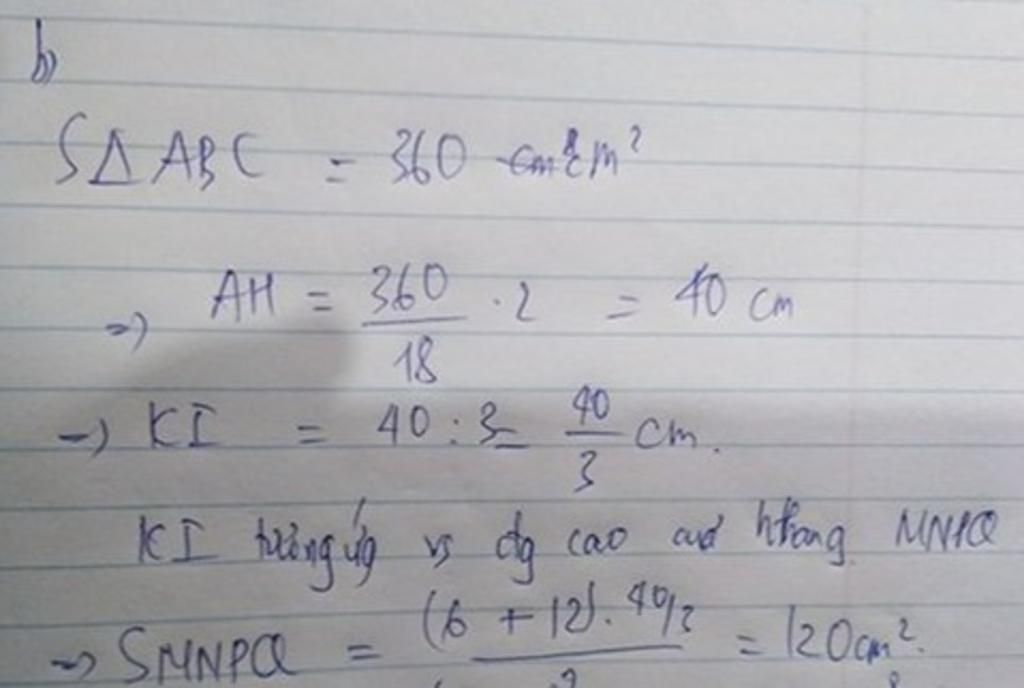 b)
SΔABC = 360 cm² cm²
=) AH = 360/18 . 2 = 40 cm
=) KI = 40 : 3 = 40/3 cm.
KI tương ứg vs đg cao của hthang MNPQ
=> SMNPQ = (6 + 12) . 40/3 / 2 = 120cm².